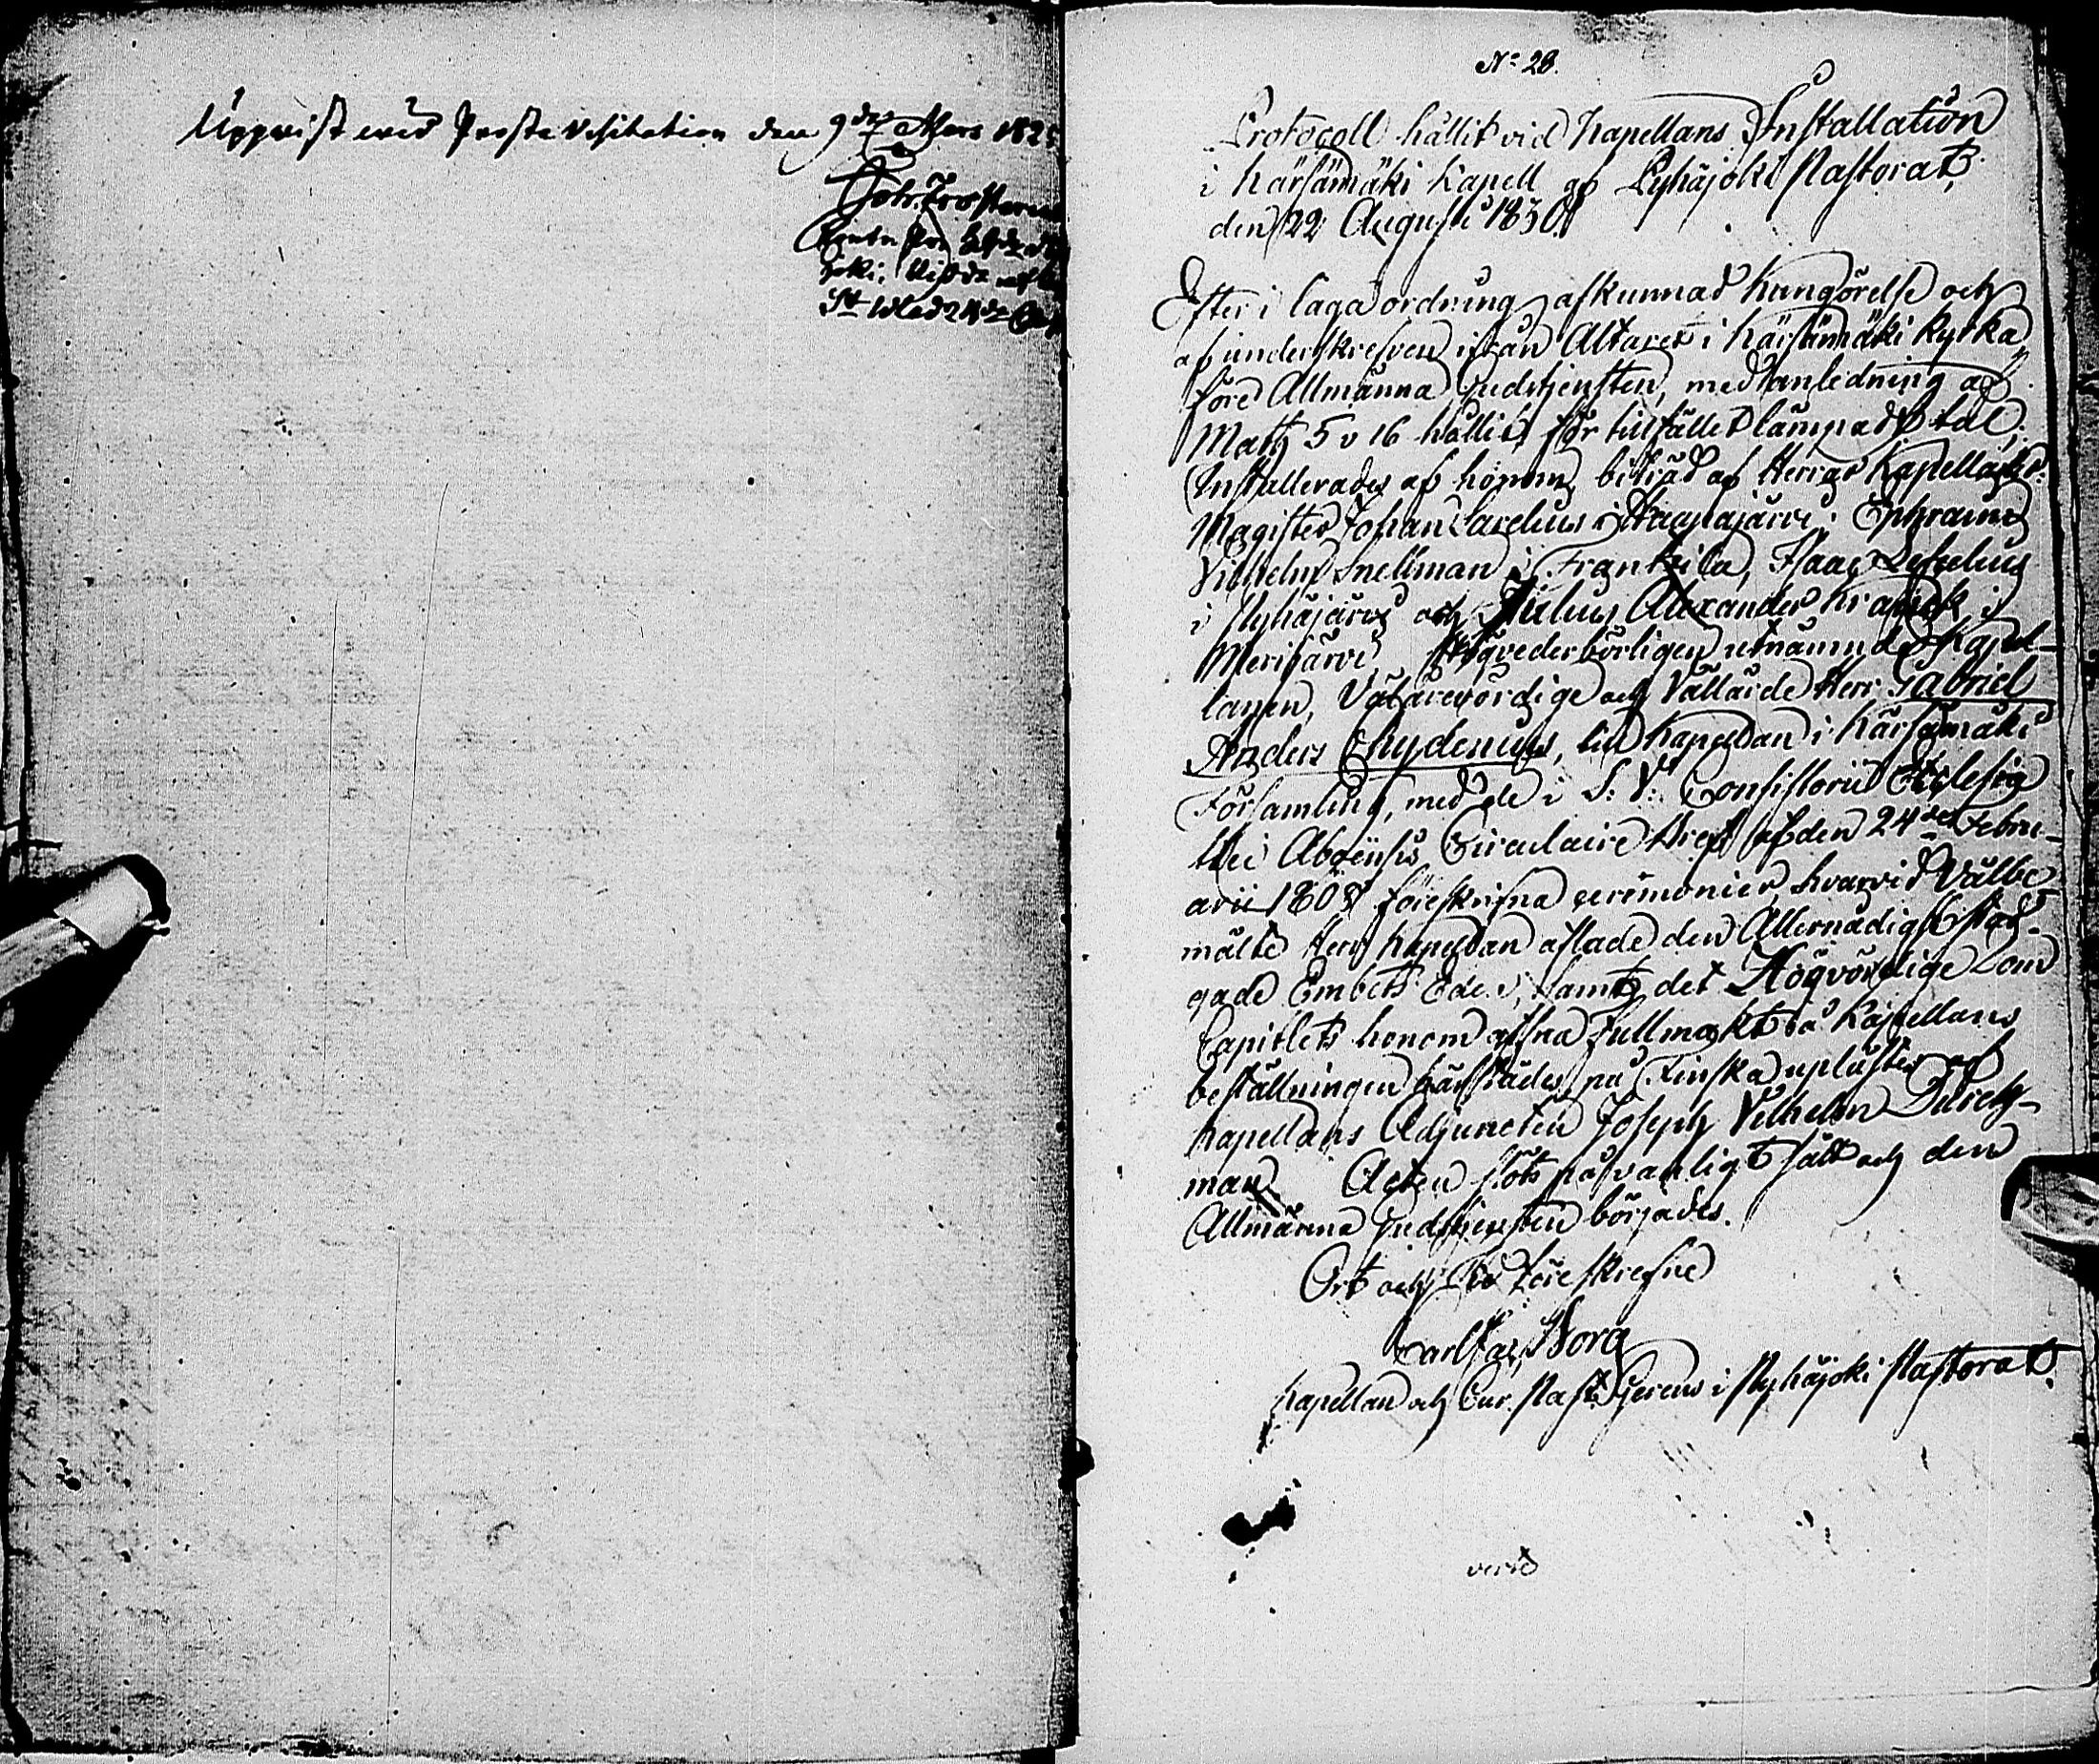 Uppvist wid Prosta Visitation den 9de Mars 182
Joh. Frosterus
No 28.
Protocoll hållit vid Kapellans Installation
i Kärsämäki Kapell af Pyhäjoki Pastorat,
den 22 Augusti 1830.
Efter i laga ordning afkunnad kungörelse och
af underskrefven ifrån Altaret i Kärsämäki Kyrka,
före Allmänna Gudstjensten, med anledning af
Math 5 v 16 hållit för tillfället lämpadt tal,
Installerades af honom, biträd af Herrar Kapellaner
Magister Johan Carelius i Haapajärvi, Ephraim
Vilhelm Snellman i Frantsila, Isaac
i Pyhäjärvi och Julius Alexander Kranck i
Merijärvi, Högvederbörligen utnämnde Kapel-
lanen, Välärevördige och Vällärde Herr Gabriel
Anders Chydenius, till Kapellan i Kärsämäki
Församling, med de i S: V: Consistorii Ecclesia
stici Aboënsis Circulaire Bref af den 24de Febru-
arii 1808 föreskrifna ceremonier, hvarvid Välbe-
mälte Herr Kapellan aflade den Allernådigst stad-
gade Embets Eden, samt det Högvördige Dom
Capitlets honom gifna fullmakt på Kapellans
beställningen härstädes på Finska uplästes af
Kapellans Adjuncten Joseph Vilhelm Durch-
man. Acten slöts på vanligt sätt och den
Allmänna Gudstjensten börjades.
Ort och Tid föreskrefne
Carl Jac. Borg
Kapellan och Cur. Past. Gerens i Pyhäjoki Pastorat.